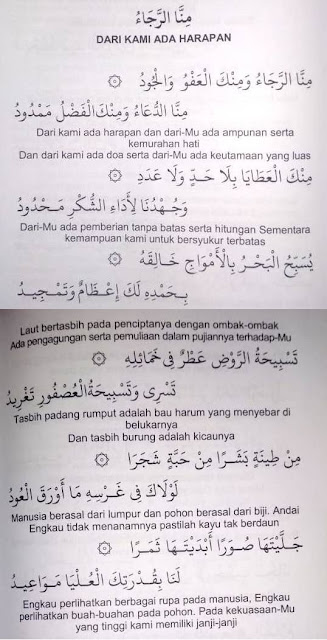 مِنَّا الرَّجَاءُ
DARI KAMI ADA HARAPAN
مِنَّا الرَّجَاءُ وَمِنْكَ الْعَفْوُ وَالْجُودُ
مِنَّا الدُّعَاءُ وَمِنْكَ الْفَضْلُ مَمْدُودُ
Dari kami ada harapan dan dari-Mu ada ampunan serta
kemurahan hati
Dan dari kami ada doa serta dari-Mu ada keutamaan yang luas
مِنْكَ الْعَطَايَا بِلَا حَدٍّ وَلَا عَدَدٍ
وَجُهْدُنَا لِأَدَاءِ الشُّكْرِ مَحْدُودُ
Dari-Mu ada pemberian tanpa batas serta hitungan Sementara
kemampuan kami untuk bersyukur terbatas
يُسَبِّحُ الْبَحْرُ بِالْأَمْوَاجِ خَالِقَهُ
بِحَمْدِهِ لَكَ إِعْظَامٌ وَتَمْجِيدُ
Laut bertasbih pada penciptanya dengan ombak-ombak
Ada pengagungan serta pemuliaan dalam pujiannya terhadap-Mu
تَسْبِيحَةُ الرَّوْضِ عَطْرٌ فِى خَمَائِلِهِ
تَسْرِى وَتَسْبِيحَةُ الْعُصْفُورِ تَغْرِيدُ
Tasbih padang rumput adalah bau harum yang menyebar di
belukarnya
Dan tasbih burung adalah kicaunya
مِنْ طِينَةٍ بَشَرًا مِنْ حَبَّةٍ شَجَرًا
لَوْلَاكَ فِى غَرْسِهِ مَا أَوْرَقَ الْعُودُ
Manusia berasal dari lumpur dan pohon berasal dari biji. Andai
Engkau tidak menanamnya pastilah kayu tak berdaun
جَلَّيْتَهَا صُوَرًا أَبْدَيْتَهَا ثَمَرًا
لَنَا بِقُدْرَتِكَ الْعُلْيَا مَوَاعِيدُ
Engkau perlihatkan berbagai rupa pada manusia, Engkau
perlihatkan buah-buahan pada pohon. Pada kekuasaan-Mu
yang tinggi kami memiliki janji-janji